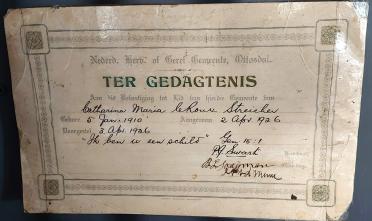 Nederd. Herv. of Geref. Gemeente, Ottosdal.
TER GEDAGTENIS
Aan die Bevestiging tot Lid van hierdie Gemeente van
Catharina Maria LeRoux Streicher
Gebore 5 Jan. 1910 Aangeneem 2 Apr 1926
Voorgestel 3 Apr. 1926
"Ik ben u een schild" Gen. 15:1